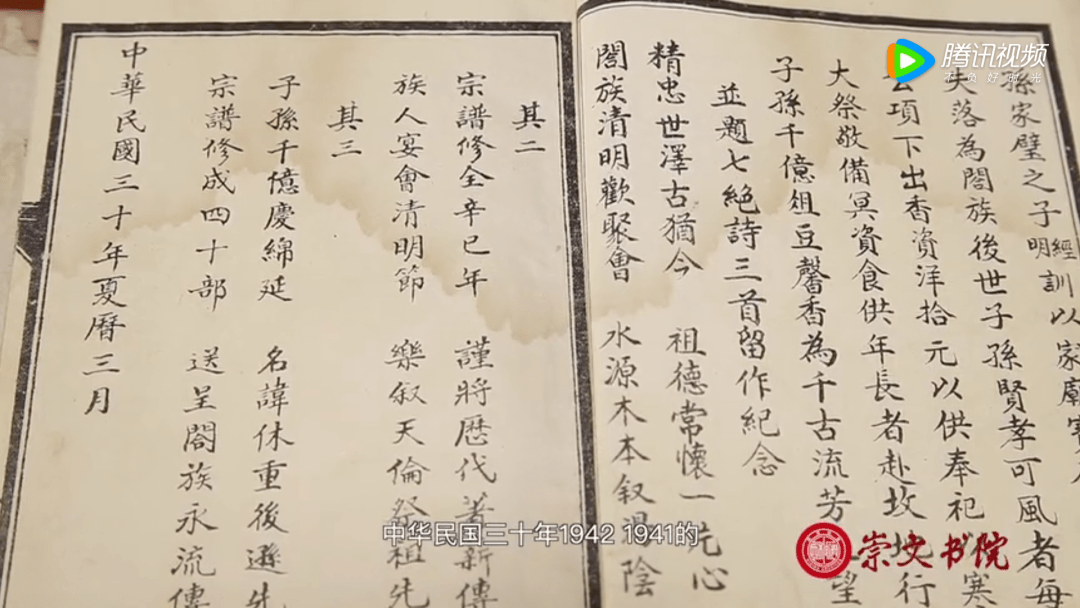 孫家璧之子經明訓以家廟
失落為閤族後世子孫賢孝可風者每
項下出香資洋拾元以供奉祀寒
大祭敬備冥資食供年長者赴坟地行
子孫千億俎豆馨香為千古流芳望
並題七絕詩三首留作紀念
精忠世澤古猶今 祖德常懷一片心
閤族清明歡聚會 水源木本叙湯陰
其二
宗譜修全辛巳年 謹將歷代著新傳
族人宴會清明節 樂叙天倫祭祖先
其三
子孫千億慶綿延 名諱休重後遜先
宗譜修成四十部 送呈閤族永流傳
中華民國三十年夏曆三月
腾讯视频
不负好时光
中华民国三十年1942 1941的
崇文书院